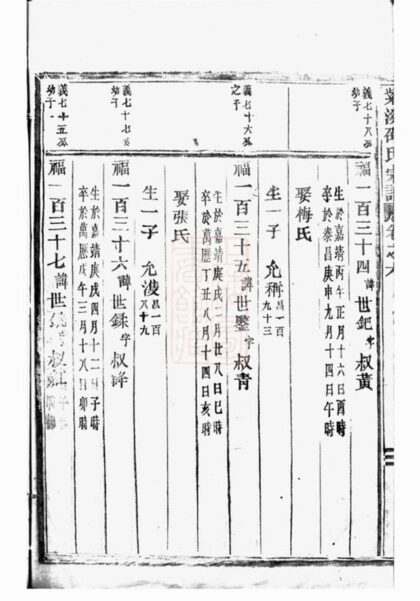 氏宗譜 卷之六
義七十八派
幼子
福一百三十四諱世鈀字叔黃
生於嘉靖丙午正月十六日酉時
卒於泰昌庚申九月十四日午時
娶梅氏
生一子 允稱昌一百九十三
義七十六派
之子
福一百三十五諱世鑒字叔青
生於嘉靖庚戌二月廿八日巳時
卒於萬曆丁丑八月十四日亥時
娶張氏
生一子 允浚昌一百八十九
義七十七派
幼子
福一百三十六諱世銖字叔
生於嘉靖庚戌四月十二日子時
卒於萬曆戊午三月十八日卯時
義七十五派
幼子
福一百三十七諱世 字叔